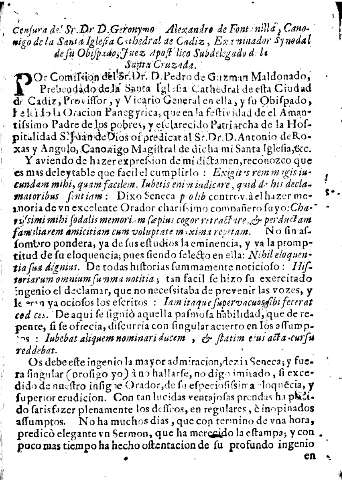 Censura del Sr. Dr D. Geronymo Alexandro de Fontanilla, Cano-
nigo de la Santa Iglesia Cathedral de Cadiz, Examinador Synodal
de su Obispado, Juez Apostolico Subdelegado de la
Santa Cruzada.
POr Comission del Sr. Dr. D. Pedro de Guzman Maldonado,
Prebendado de la Santa Iglesia Cathedral de esta Ciudad
de Cadiz, Provissor, y Vicario General en ella, y su Obispado,
la Oracion Panegyrica, que en la festividad de el Aman-
tissimo Padre de los pobres, y esclarecido Patriarcha de la Hos-
pitalidad S. Juan de Dios predicat al Sr. Dr. D. Antonio de Ro-
xas y Angulo, Canonigo Magistral de dicha mi Santa Iglesia, &c.
Y aviendo de hazer expression de mi dictamen, reconozco que
es mas deleytable que facil el cumplirlo: Exigis rem magis iu-
cundam mihi, quam facilem. Iubetis enim iudicare, quid de his decla-
matoribus sentiam: Dixo Seneca al hazer me-
moria de vn excelente Orador charissimo compañero suyo: Cha-
rissimi mihi sodalis memoriam sæpius cogor retractare, & perductam
familiarem amicitiam cum voluptate maxima repetam. No sin as-
sombro pondera, ya de sus estudios la eminencia, y va la promp-
titud de su eloquencia; pues siendo selecto en ella: Nihil eloquen-
tia sua dignius. De todas historias summamente noticioso: His-
toriarum omnium summa notitia; tan facil se hizo su exercitado
ingenio el declamar, que no necessitaba de prevenir las vozes, y
le eran ya ociosos los escritos: Iam itaque supervacuos sibi fecerat
codices. De aqui se siguiò aquella pasmosa habilidad, que de re-
pente, si se ofrecia, discurria con singular acierto en los assump-
tos: Iubebat aliquem nominari ducem, & statim eius acta cursu
reddebat.
Os debe este ingenio la mayor admiracion, dezia Seneca; y fue-
ra singular (prosigo yo) à no hallarse, no digo imitado, si exce-
dido de nuestro insigne Orador, de su especiosissima eloquecia, y
superior erudicion. Con tan lucidas ventajosas prendas ha podi-
do satisfazer plenamente los desseos, en regulares, è inopinados
assumptos. No ha muchos dias, que con termino de vna hora,
predicò elegante vn Sermon, que ha merecido la estampa; y con
poco mas tiempo ha hecho ostentacion de su profundo ingenio
en